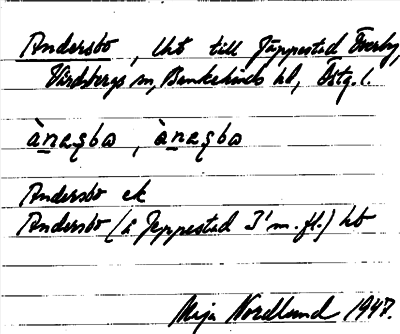 Andersbo, lht till Jäppestad Överby,
Vårdsbergs sn, Bankekinds hd, Östg. l.
Andersbo ek
Andersbo (å Jeppestad I' m. fl.) hb
Maja Nordlund 1947.